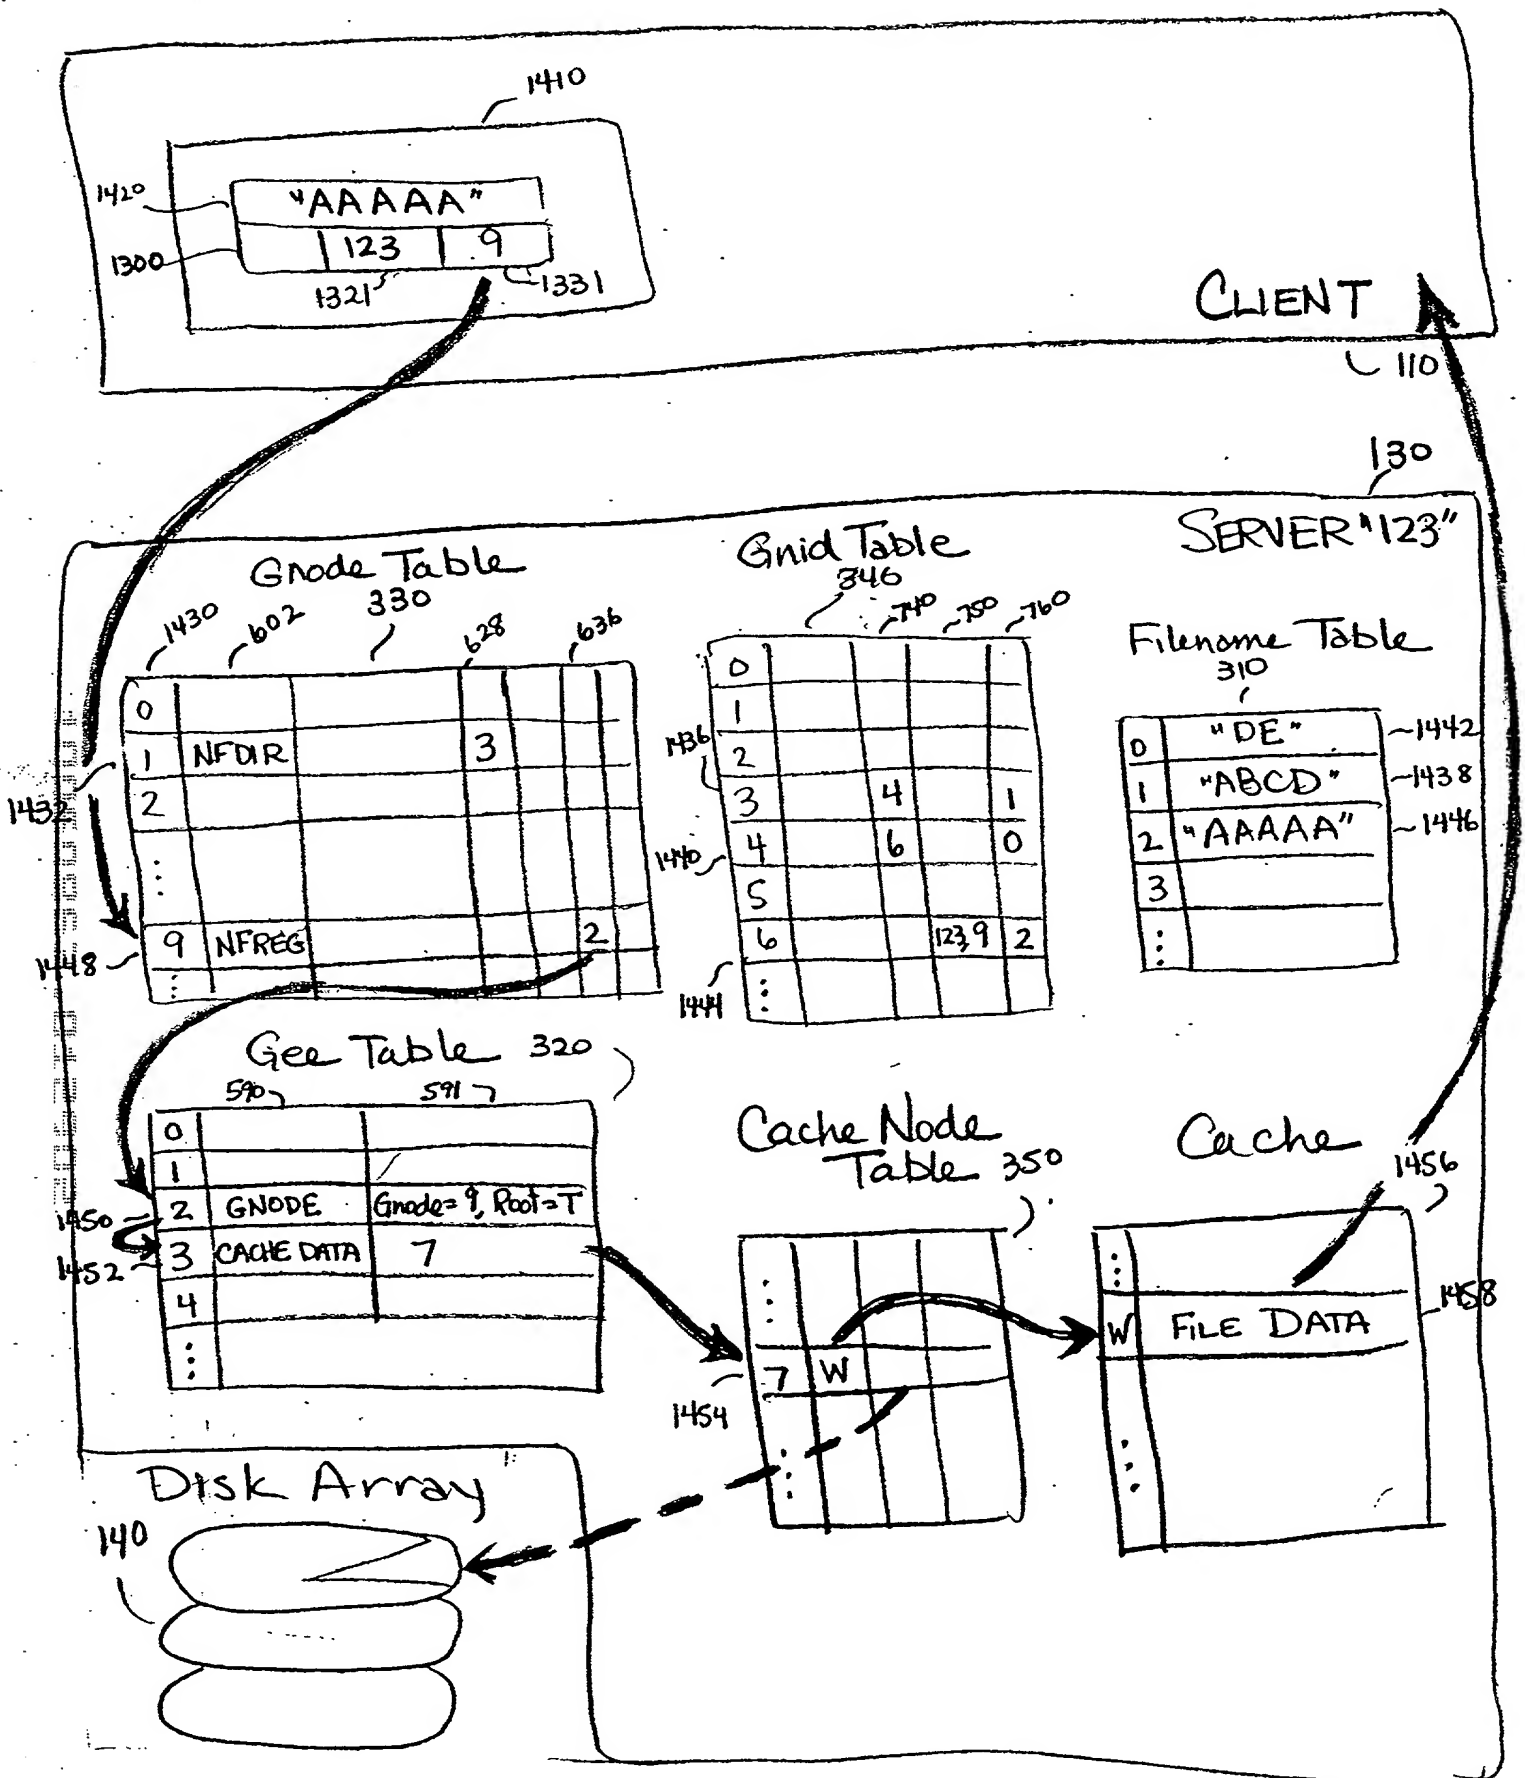 1410
1420
"AAAAA"
1300
123
9
1321
1331
CLIENT
110
130
SERVER "123"
Gnode Table
330
1430
602
628
636
0
1 NFDIR 3
1432
2
⋮
9 NFREG 2
1448
⋮
Gnid Table
346
740
750
760
0
1
1436
2
3 4 1
4 6 0
1440
5
6 123,9 2
1444
⋮
Filename Table
310
0 "DE" 1442
1 "ABCD" 1438
2 "AAAAA" 1446
3
⋮
Gee Table 320
590
591
0
1
1450 2 GNODE Gnode=9, Root=T
1452 3 CACHE DATA 7
4
⋮
Cache Node
Table 350
⋮
7 W
1454
⋮
Cache
1456
⋮
1458
W FILE DATA
⋮
Disk Array
140